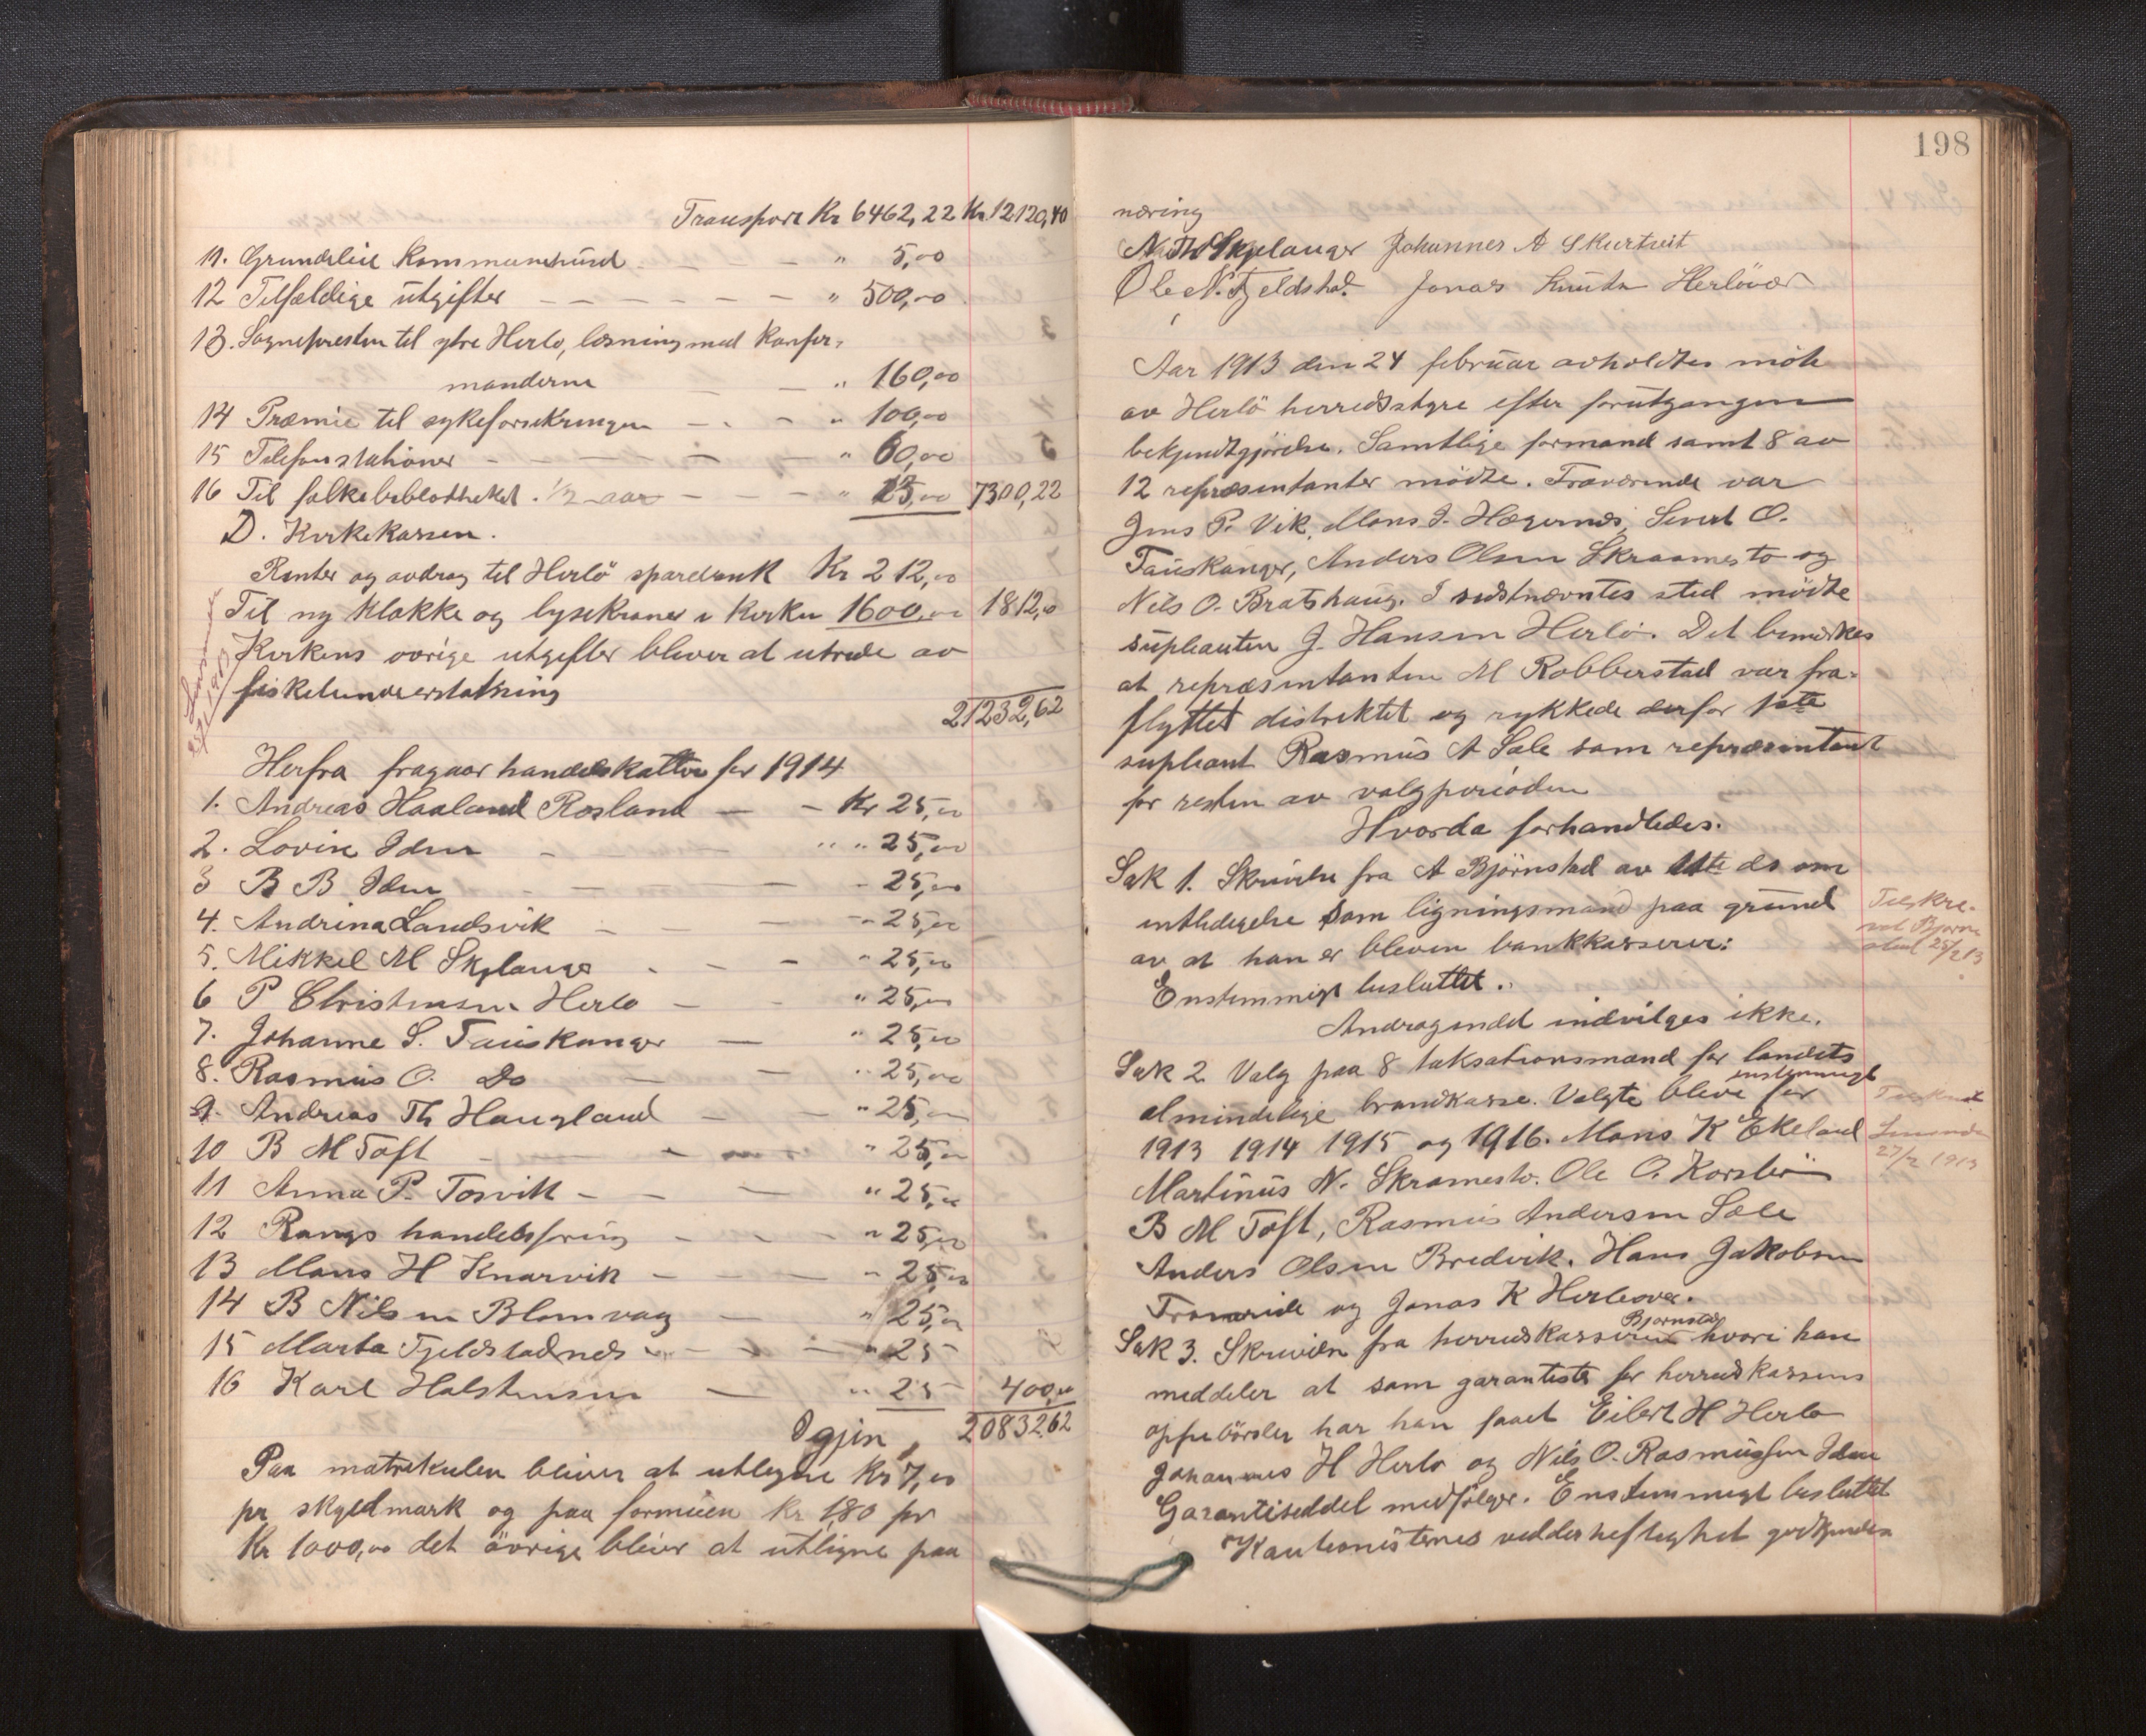 Transport Kr 6462,22 Kr. 12120,40
11. Grundleie kommunehused " 5,00
12 Tilfældige utgifter " 500,00
13. Sognepresten til ytre Herlo, læsning med konfir-
manderne " 160,00
14 Præmie til sykeforsikringen " 100,00
15 Telefonstationer " 60,00
16 Til folkebibliotheket. 1/2 aar " 25,00 7300,22
D. Kirkekassen.
Renter og avdrag til Herlö sparebank Kr 212,00
Til ny klokke og lysekroner i kirken 1600,00 1812,00
Kirkens övrige utgifter bliver at utrede av
fisketiendeerstatning
21232,62
Herfra fragaar handelskatten for 1914
1. Andreas Haaland Rosland — Kr 25,00
2. Lovise Iden " 25,00
3 B B Iden " 25,00
4. Andrina Landsvik " 25,00
5. Mikkel M Skjelanger " 25,00
6 P Christensen Herlo " 25,00
7. Johanne S. Tauskanger " 25,00
8. Rasmus O. Do " 25,00
9. Andreas Th Haugland " 25,00
10 B M Toft " 25,00
11 Anna P. Torsvik " 25,00
12 Rongs handelsforening " 25,00
13 Mons H Knarvik " 25,00
14 B Nilsen Blomvaag " 25,00
15 Marta Fjeldstadnes " 25
16 Karl Halstensen " 25 400,00
Igjen 20832,62
Paa matrikulen bliver at utlegne Kr 7,00
pr skyldmark og paa formuen Kr 1,80 pr
Kr 1000,00 det övrige bliver at utligne paa
198
næring
N. Th Skjelanger Johannes A Skurtveit
Ole N. Fjeldstad. Jonas Knuts. Herlövær
Aar 1913 den 24 februar avholdtes möte
av Herlö herredsstyre efter forutgangen
bekjendtgjörelse. Samtlige formænd samt 8 av
12 repræsentanter mödte. Fraværende var
Jens P. Vik, Mons J. Hægernes, Sivert O.
Tauskanger, Anders Olsen Skraamesto og
Nils O. Bratshaug. I sidstnævntes sted mödte
supleanten J. Hansen Herlö. Det bemerkes
at repræsentanten M Robberstad var fra-
flyttet distriktet og rykkede derfor 1ste
supleant Rasmus A Sæle som repræsentant
for resten av valgperioden
Hvorda forhandledes.
Sak 1. Skrivelse fra A Björnstad av 11te ds om
entledigelse som ligningsmand paa grund
av at han er bleven bankkasserer:
Enstemmigt besluttet.
Andragendet indvilges ikke.
Tilskre-
vet Bjørn-
stad 25/2 13
Sak 2. Valg paa 8 taksationsmænd for landets
almindelige brandkasse. Valgte bleve enstemmigt for
1913 1914 1915 og 1916. Mons K Ekeland
27/2 1913
Martinus N. Skramesto. Ole O. Korslö
B M Toft, Rasmus Andersen Sæle
Anders Olsen Bredvik. Hans Jakobsen
og Jonas K Herlevær.
Sak 3. Skrivelse fra herredskasserer Bjørnstad hvori han
meddeler at som garantister for herredskassens
oppebörsler har han faaet Eilert H Herlo
Johannes H Herlo og Nils O. Rasmussen Iden
Garantiseddel medfölger. Enstemmigt besluttet
Kautionisternes vederheftighet godkjendes